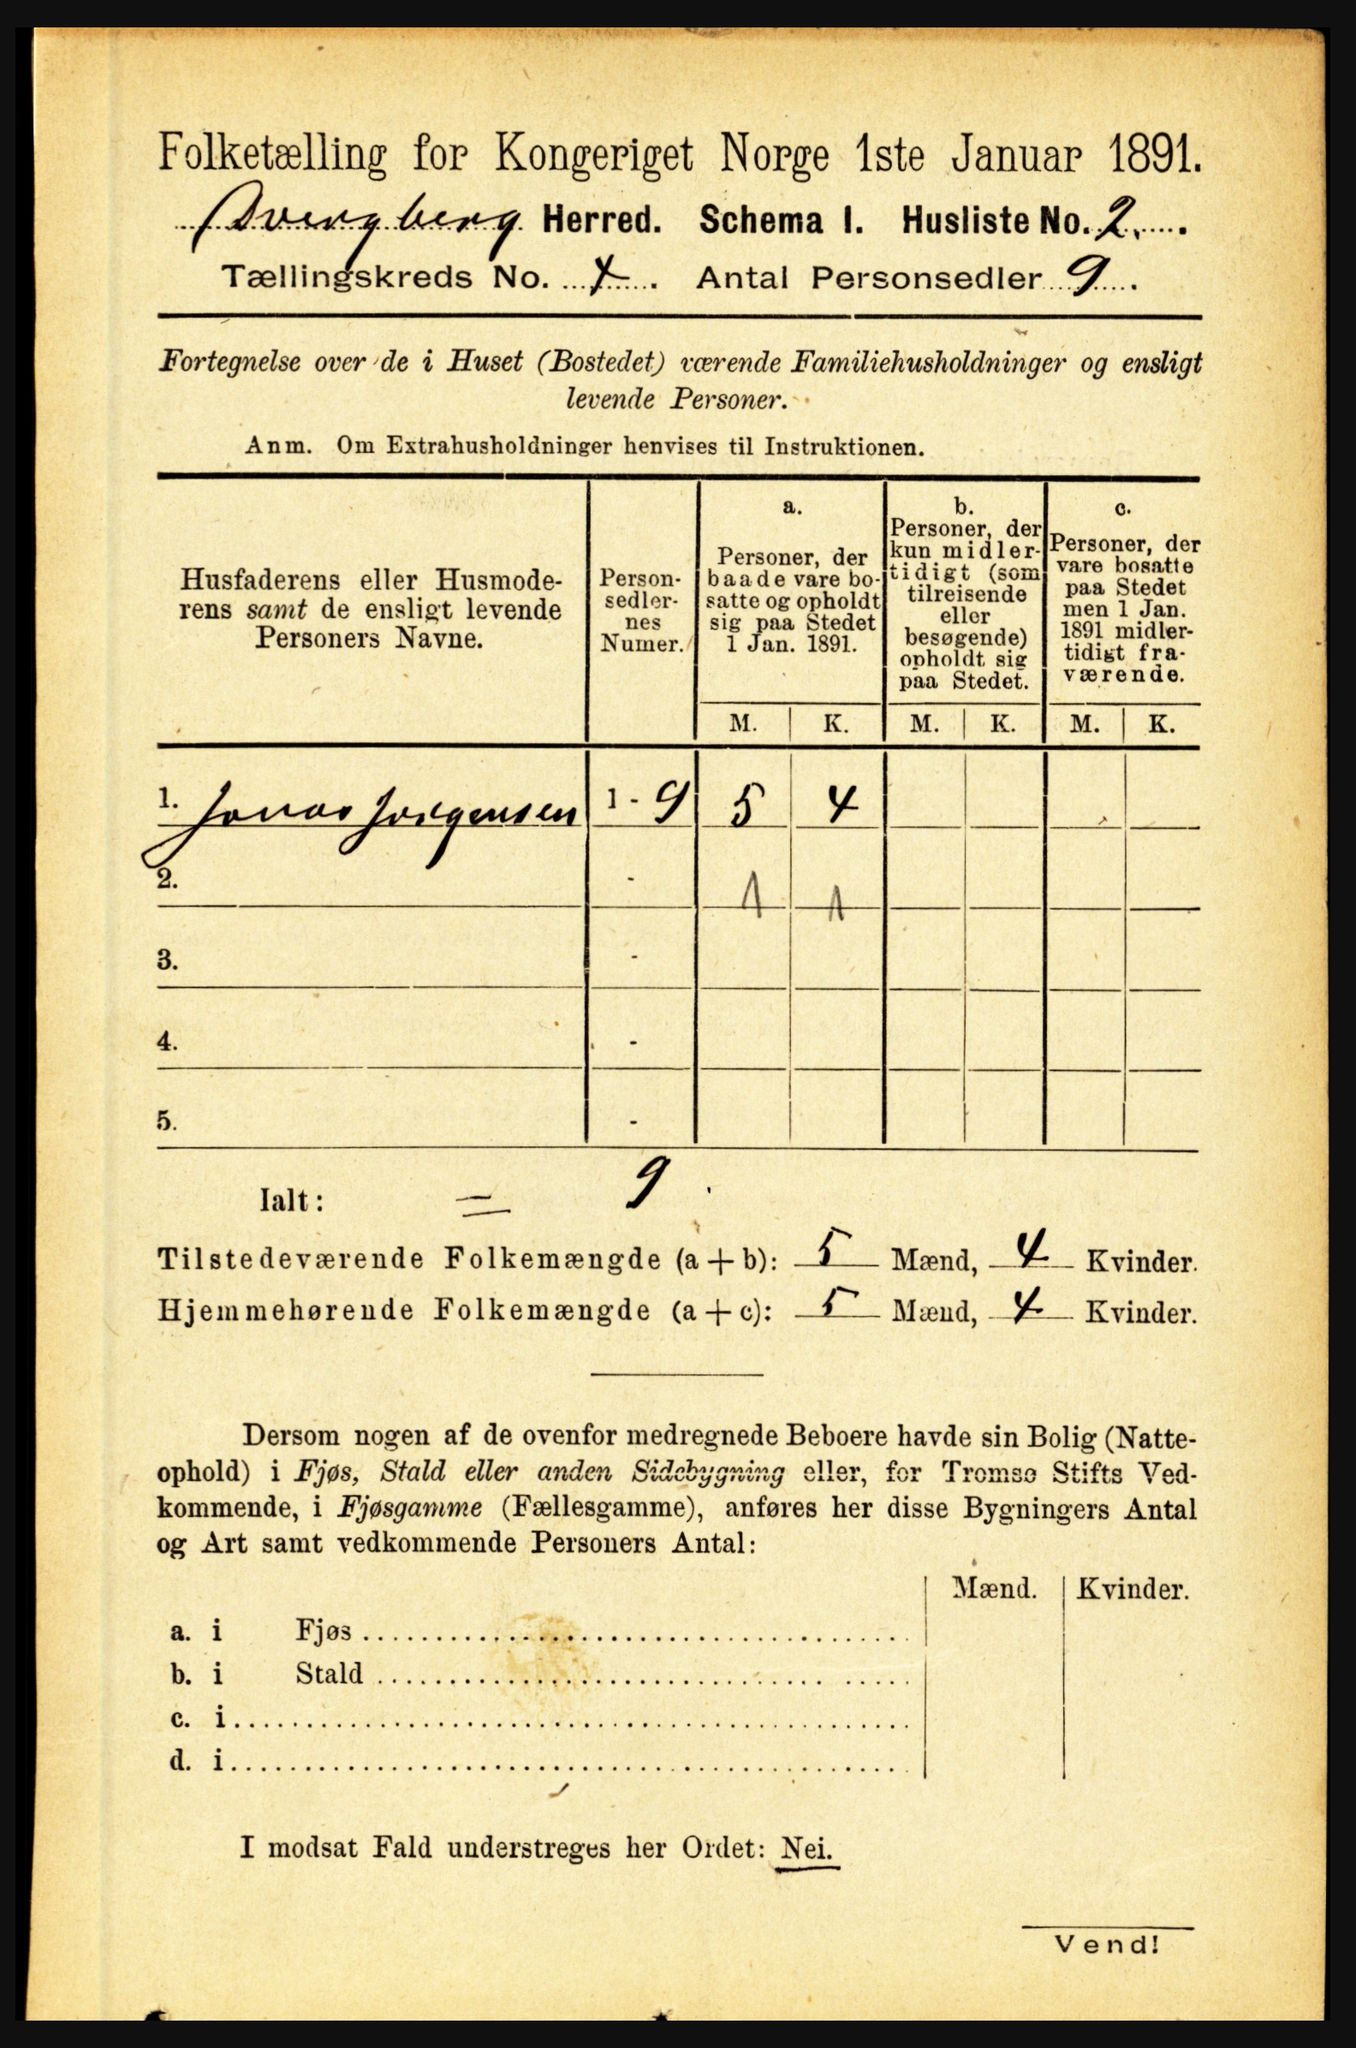 Folketælling for Kongeriget Norge 1ste Januar 1891.
Dvergberg Herred. Schema I. Husliste No. 2.
Tællingskreds No. 4. Antal Personsedler 9.
Fortegnelse over de i Huset (Bostedet) værende Familiehusholdninger og ensligt
levende Personer.
Anm. Om Extrahusholdninger henvises til Instruktionen.
Husfaderens eller Husmode-
rens samt de ensligt levende
Personers Navne.
Person-
sedler-
nes
Numer.
a.
Personer, der
baade vare bo-
satte og opholdt
sig paa Stedet
1 Jan. 1891.
b.
Personer, der
kun midler-
tidigt (som
tilreisende
eller
besøgende)
opholdt sig
paa Stedet.
c.
Personer, der
vare bosatte
paa Stedet
men 1 Jan.
1891 midler-
tidigt fra-
værende.
M. K. M. K. M. K.
1. Jonas Jørgensen 1 - 9 5 4
2. - 1 1
3. -
4. -
5. -
Ialt: = 9.
Tilstedeværende Folkemængde (a + b): 5 Mænd, 4 Kvinder.
Hjemmehørende Folkemængde (a + c): 5 Mænd, 4 Kvinder.
Dersom nogen af de ovenfor medregnede Beboere havde sin Bolig (Natte-
ophold) i Fjøs, Stald eller anden Sidebygning eller, for Tromsø Stifts Ved-
kommende, i Fjøsgamme (Fællesgamme), anføres her disse Bygningers Antal
og Art samt vedkommende Personers Antal:
Mænd. Kvinder.
a. i Fjøs
b. i Stald
c. i
d. i
I modsat Fald understreges her Ordet: Nei.
Vend!